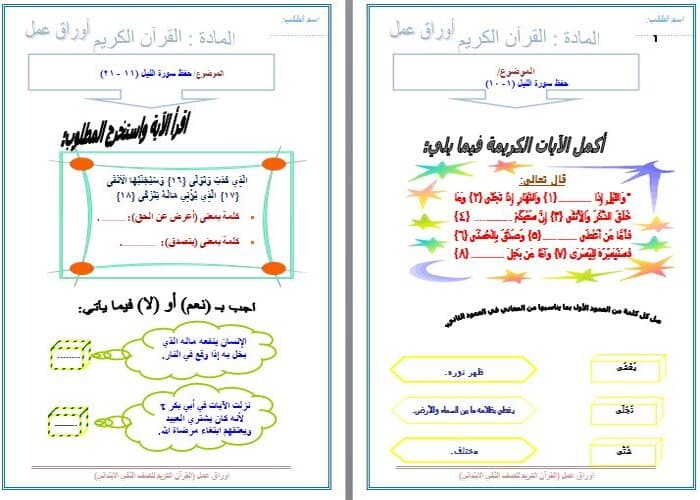 اسم الطالب:
أوراق عمل
المادة : القرآن الكريم
١
الموضوع/
حفظ سورة الليل (١- ١٠)
أكمل الآيات الكريمة فيما يلي:
قال تعالى:
"وَاللَّيْلِ إِذَا ........... {١} وَالنَّهَارِ إِذَا تَجَلَّى {٢} وَمَا
خَلَقَ الذَّكَرَ وَالْأُنثَى {٣} إِنَّ سَعْيَكُمْ ........... {٤}
فَأَمَّا مَن أَعْطَى ........... {٥} وَصَدَّقَ بِالْحُسْنَى {٦}
فَسَنُيَسِّرُهُ لِلْيُسْرَى {٧} وَأَمَّا مَن بَخِلَ ........... {٨}
صل كل كلمة من العمود الأول بما يناسبها من المعاني في العمود الثاني.
يَغْشَى
ظهر نوره.
تَجَلَّى
يغطي بظلامه ما بين السماء والأرض.
شَتَّى
مختلف.
اوراق عمل (القرآن الكريم للصف الثاني الابتدائي)
اسم الطالب:
أوراق عمل
المادة : القرآن الكريم
الموضوع/ حفظ سورة الليل (١١ - ٢١)
اقرأ الآية واستخرج المطلوب:
الَّذِي كَذَّبَ وَتَوَلَّى {١٦} وَسَيُجَنَّبُهَا الْأَتْقَى
{١٧} الَّذِي يُؤْتِي مَالَهُ يَتَزَكَّى {١٨}
كلمة بمعنى (أعرض عن الحق): ........ .
كلمة بمعنى (يتصدق): ........ .
أجب بـ (نعم) أو (لا) فيما يأتي:
الإنسان ينفعه ماله الذي
بخل به إذا وقع في النار.
.........
نزلت الآيات في أبي بكر t
لأنه كان يشتري العبيد
ويعتقهم ابتغاء مرضاة الله.
.........
اوراق عمل (القرآن الكريم للصف الثاني الابتدائي)